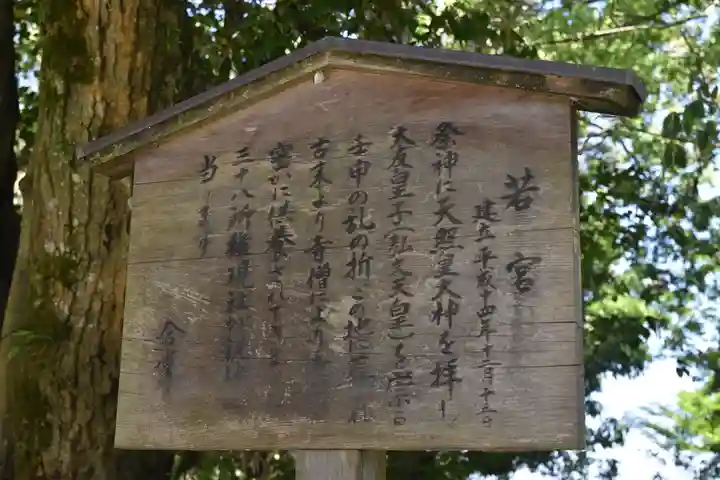 若宮
建立 平成十四年十二月十三日
祭神に天照皇大神を拝し
大友皇子(弘文天皇)を
壬申の乱の折 この地
古来より寺僧により
密かに供養されて
三十八所権現社が
当ります